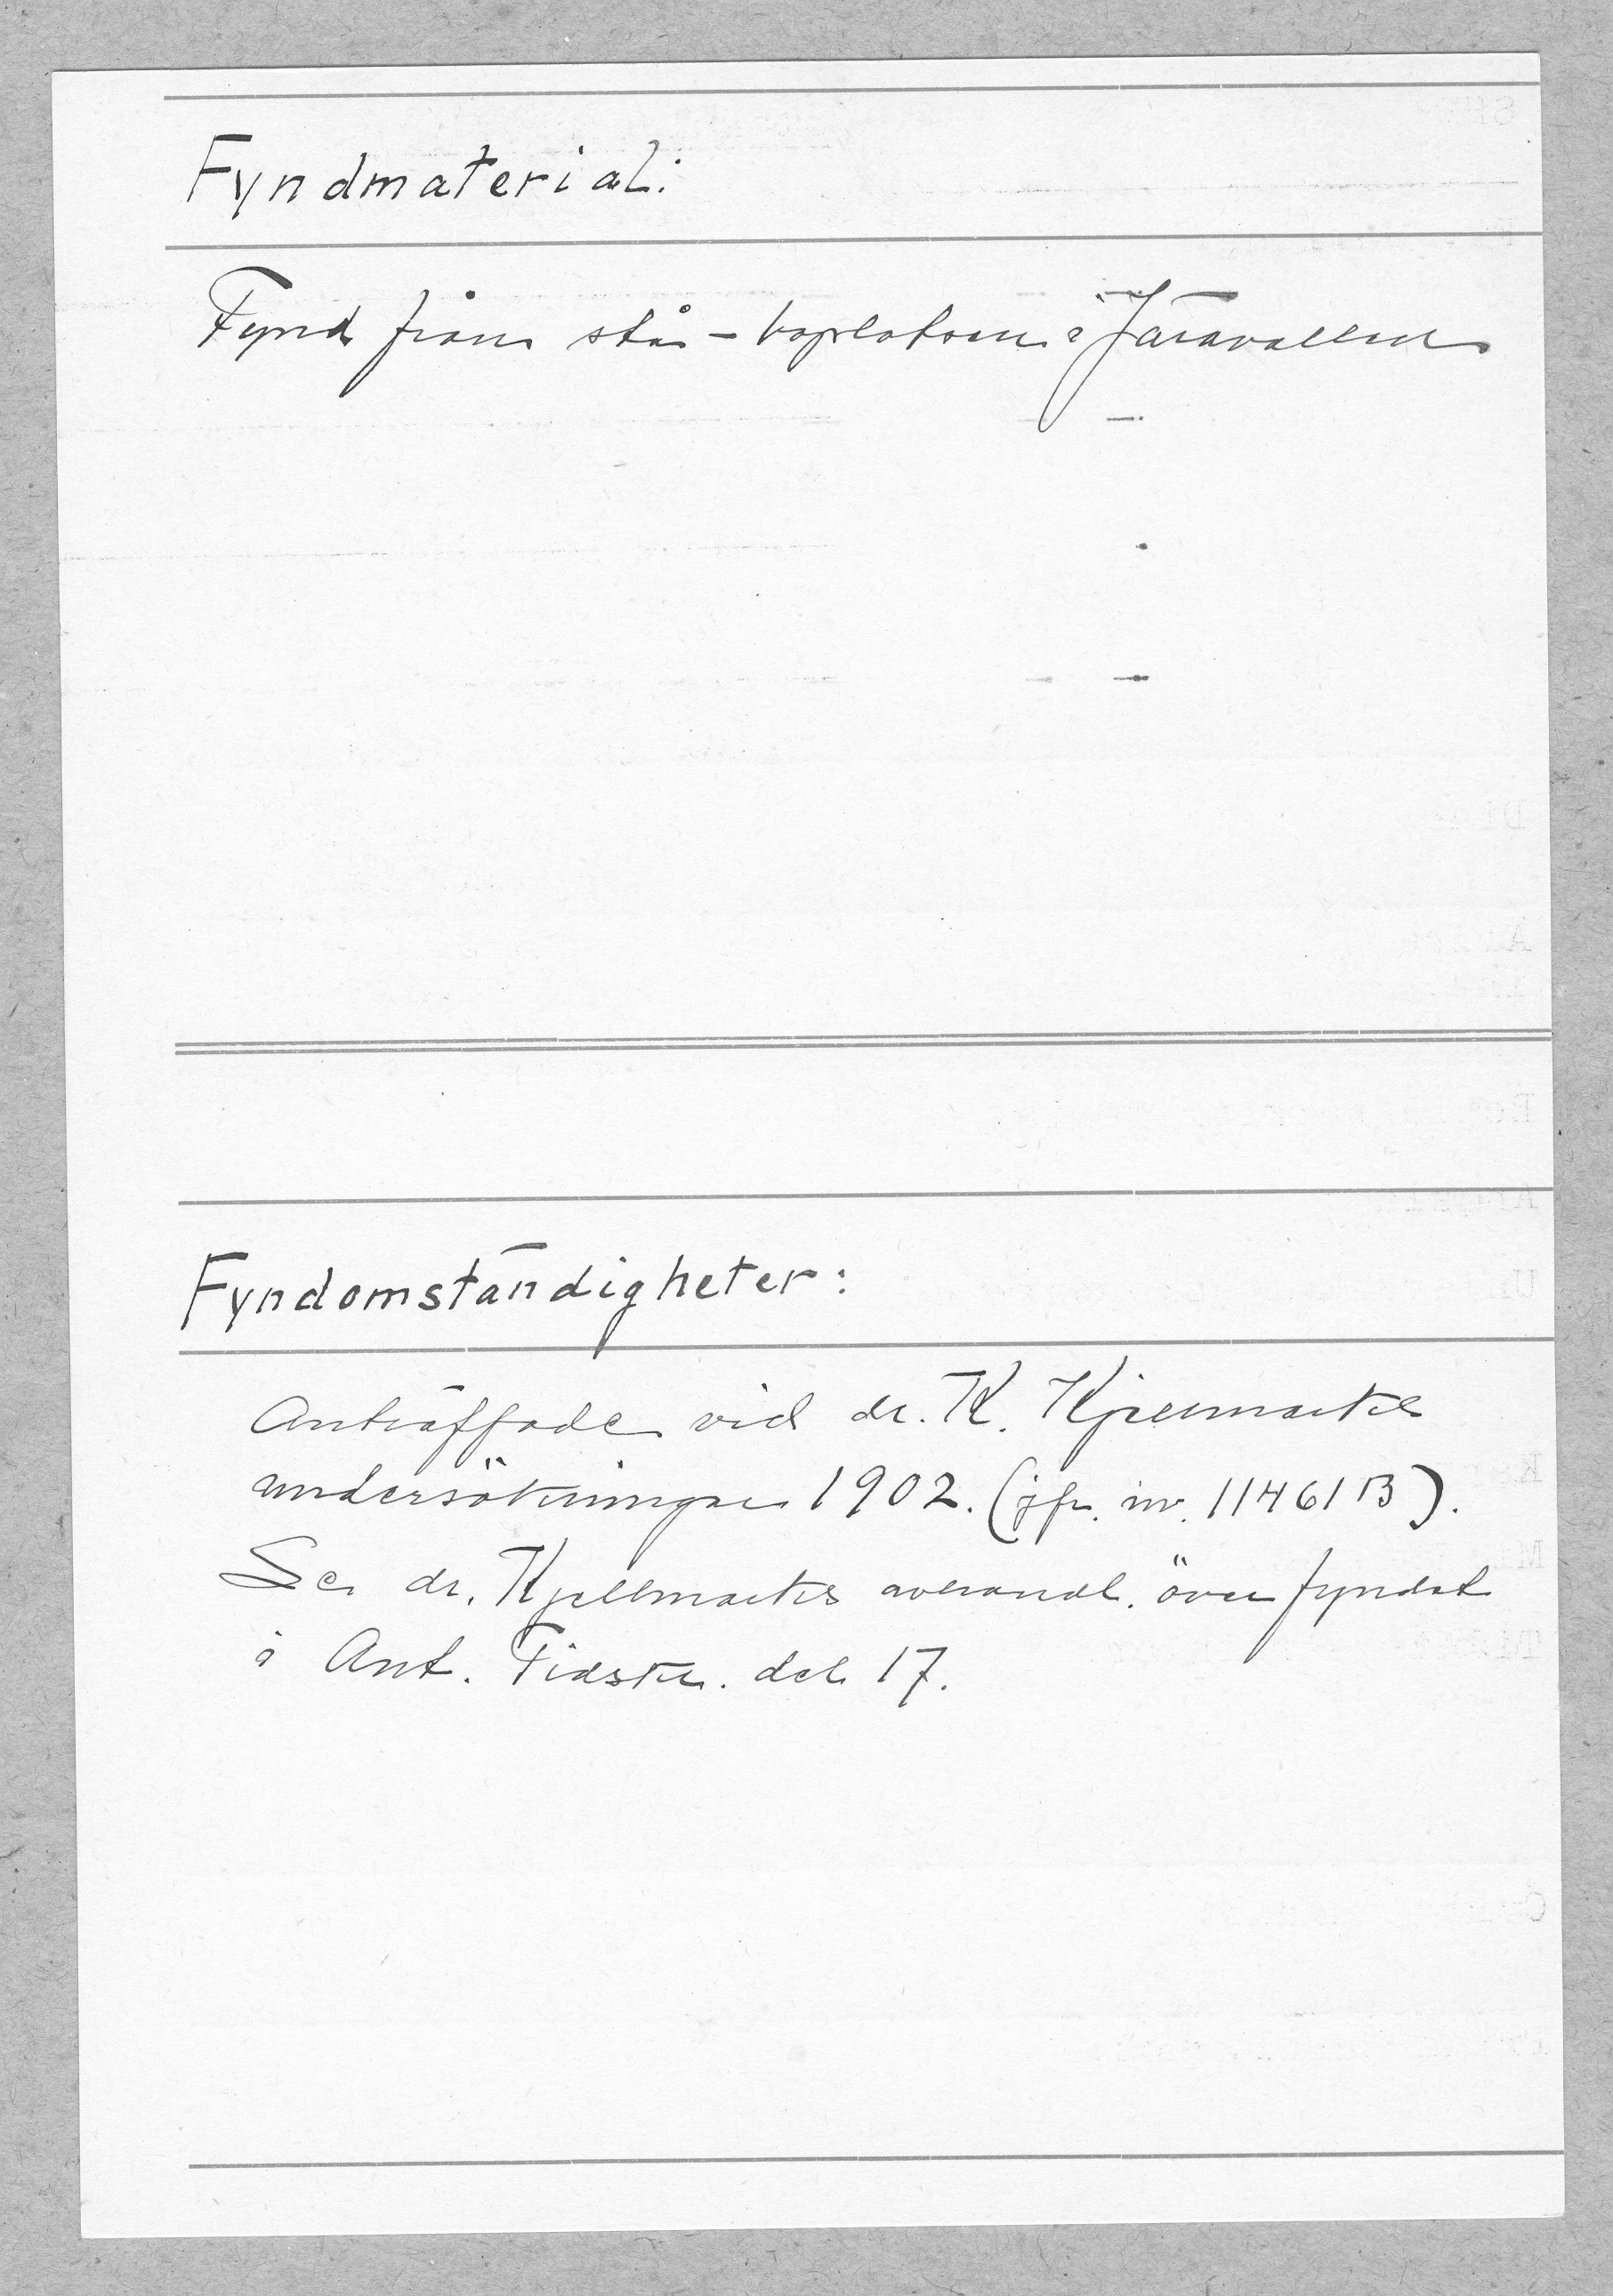 Fyndmaterial:
Fynd från stå-boplatsen i Järavallen
Fyndomständigheter:
Anträffade vid dr. K. Kjellmarks
undersökningar 1902. (jfr. inv. 11461B).
Se dr. Kjellmarks avhandl. över fyndet
i Ant. Tidskr. del 17.